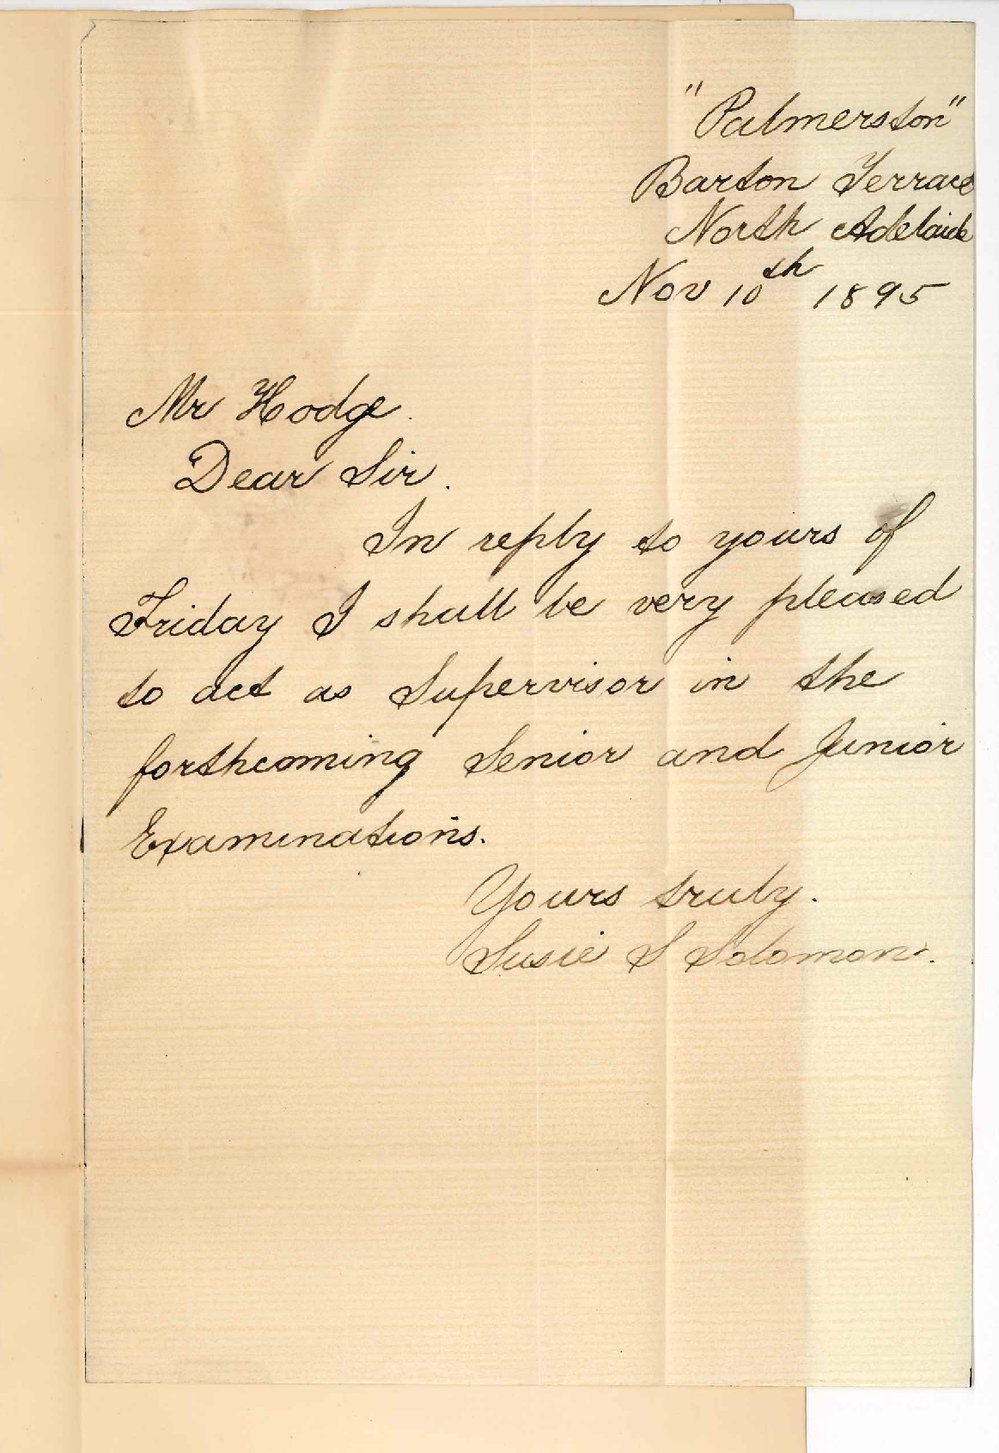 "Palmerston"
Barton Terrace
North Adelaide
Nov 10th 1895
Mr Hodge.
Dear Sir.
In reply to yours of
Friday I shall be very pleased
to act as Supervisor in the
forthcoming Senior and Junior
Examinations.
Yours truly.
Susie S Solomon.